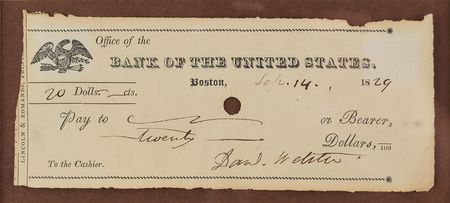 Office of the
BANK OF THE UNITED STATES,
Boston, Sep. 14. 1829
20 Dolls. cts.
Pay to or Bearer,
twenty Dollars, /100
To the Cashier. Danl. Webster
LINCOLN & EDMANDS, PR.